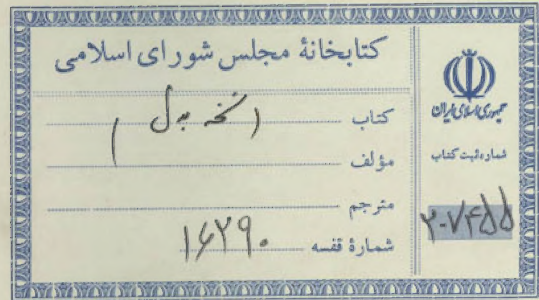 کتابخانهٔ مجلس شورای اسلامی
کتاب
مؤلف
مترجم
شمارهٔ قفسه ۱۶۲۹۰
جمهوری اسلامی ایران
شماره ثبت کتاب
۲۰۷۴۵۵